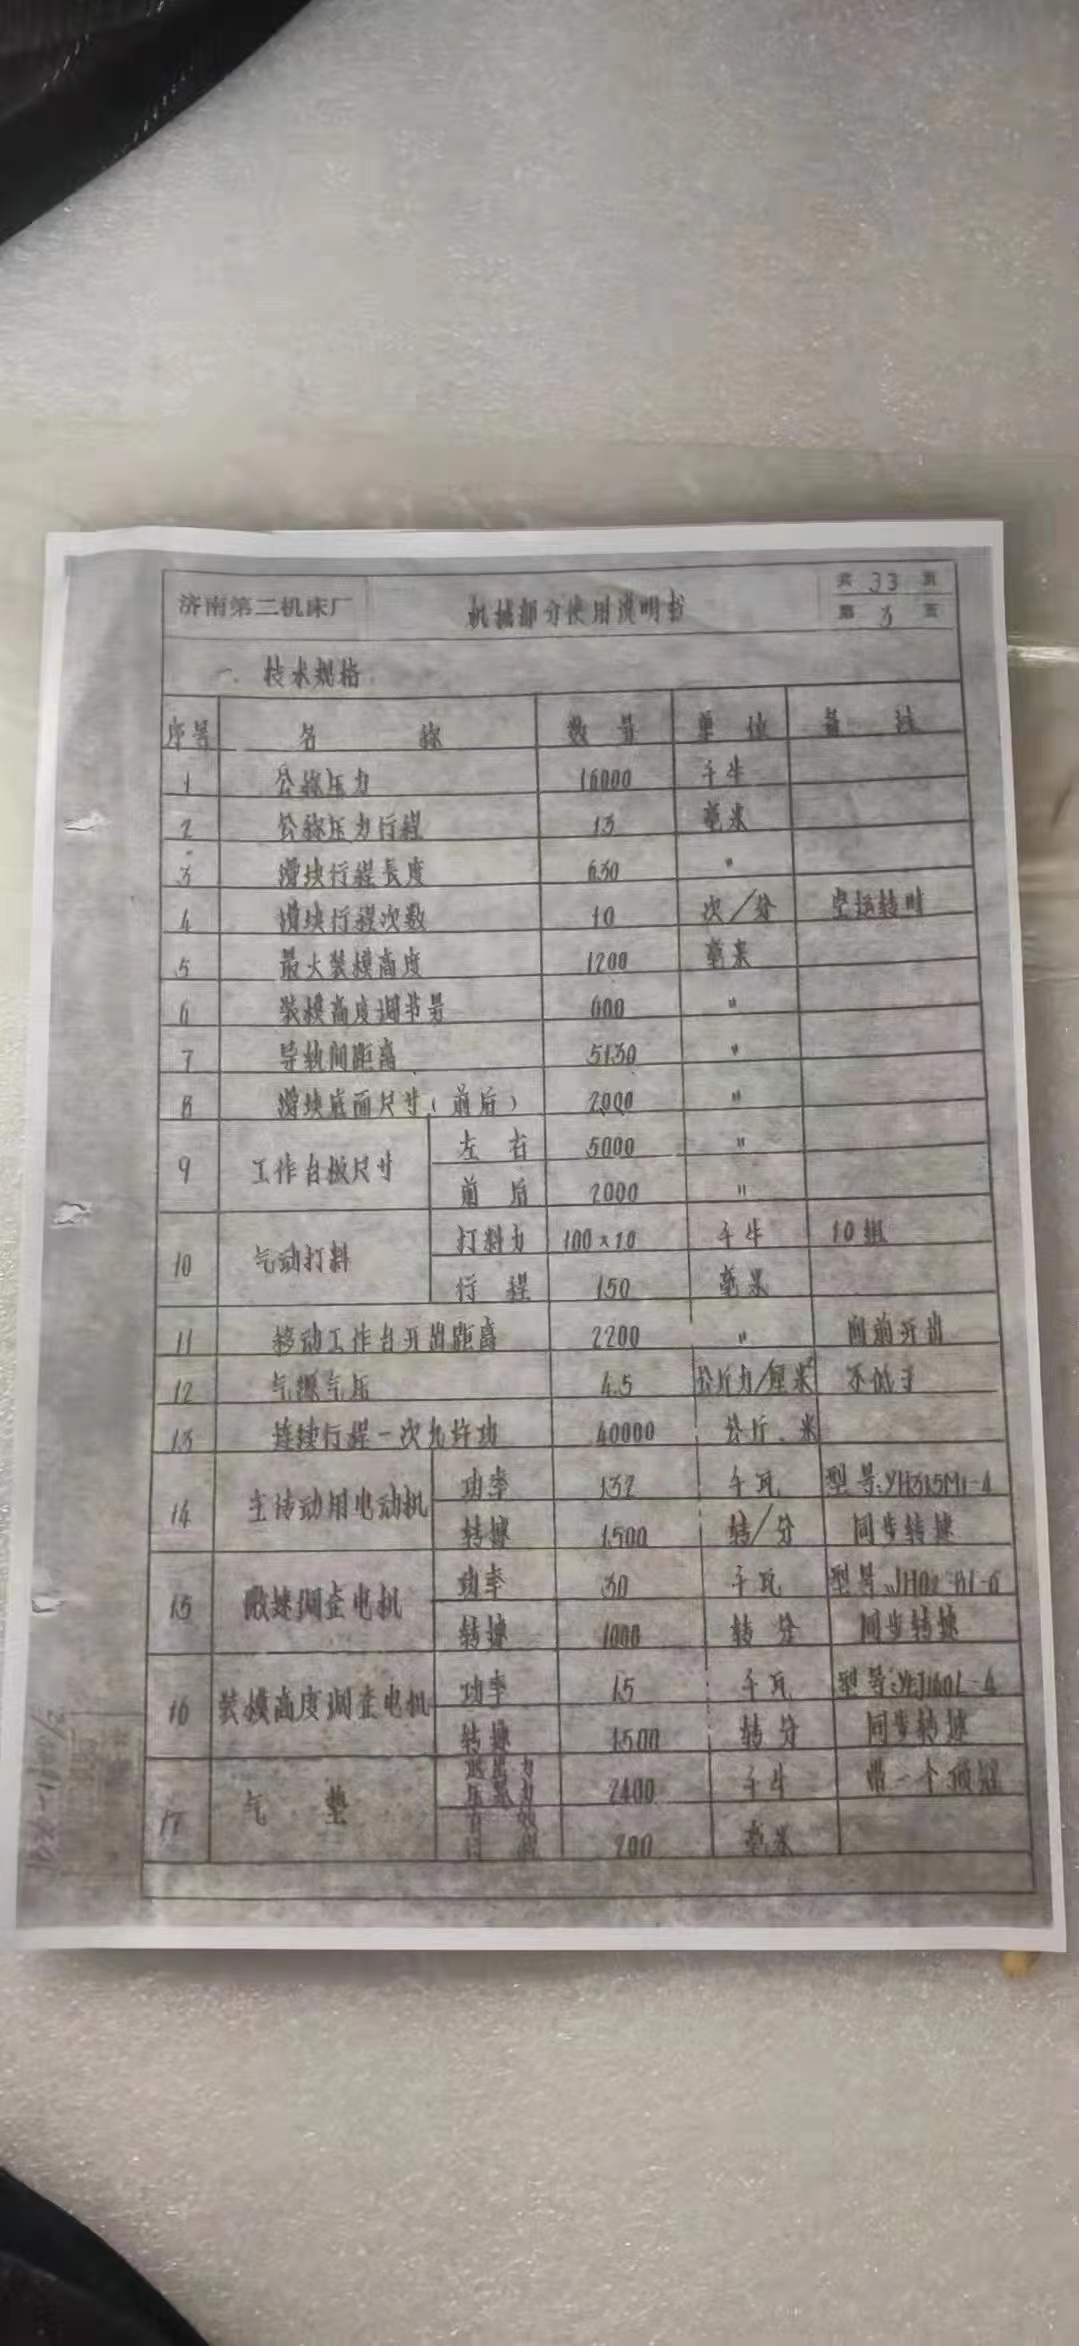 济南第二机床厂 机械部分使用说明书 共 33 页
第 3 页
一. 技术规格
序号 名 称 数 量 单 位 备 注
1 公称压力 16000 千牛
2 公称压力行程 13 毫米
3 滑块行程长度 630 〃
4 滑块行程次数 10 次/分 空运转时
5 最大装模高度 1200 毫米
6 装模高度调节量 600 〃
7 导轨间距离 5130 〃
8 滑块底面尺寸(前后) 2000 〃
9 工作台板尺寸 左 右 5000 〃
前 后 2000 〃
10 气动打料 打料力 100×10 千牛 10组
行 程 150 毫米
11 移动工作台开出距离 2200 〃 向前开出
12 气源气压 4.5 公斤力/厘米² 不低于
13 连续行程一次允许功 40000 公斤.米
14 主传动用电动机 功率 132 千瓦 型号:YH315M1-4
转速 1500 转/分 同步转速
15 微速调整电机 功率 30 千瓦 型号
转速 1000 转 分 同步转速
16 装模高度调整电机 功率 15 千瓦 型号:YEJ160L-4
转速 1500 转 分 同步转速
17 气 垫 压紧力 2400 千牛 带一个顶冠
行 程 200 毫米